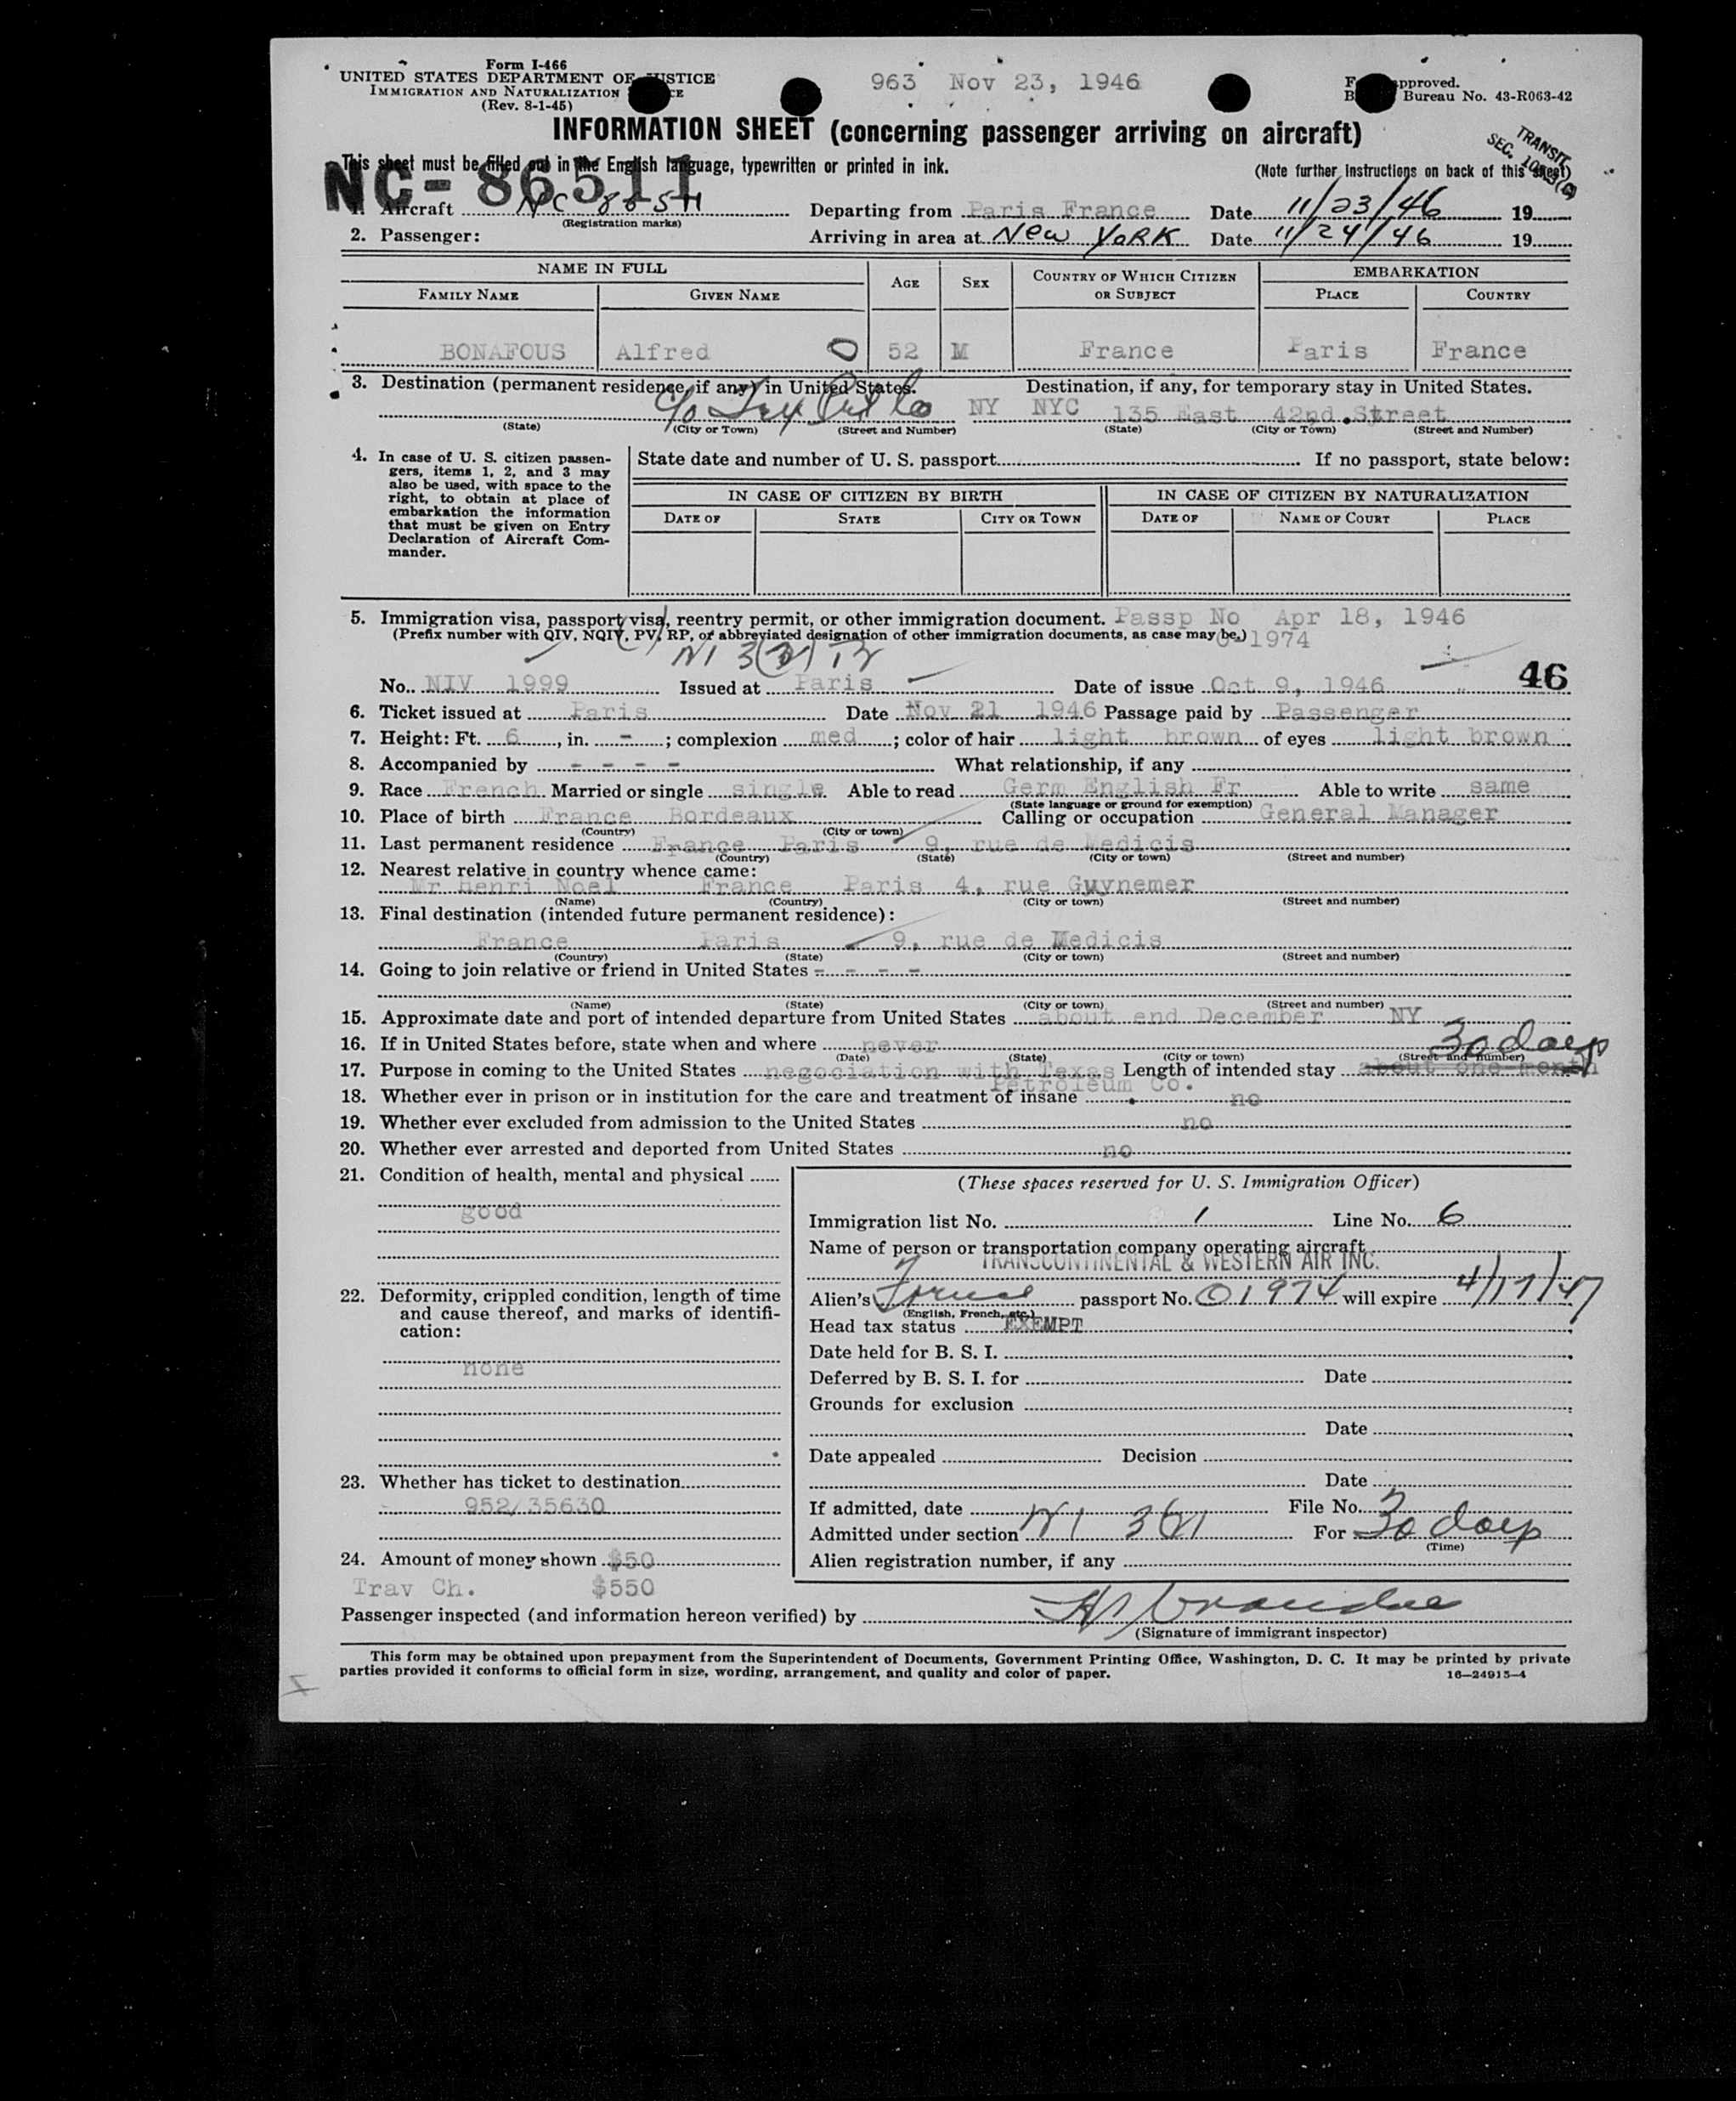 Form I-466
UNITED STATES DEPARTMENT OF JUSTICE
IMMIGRATION AND NATURALIZATION
(Rev. 8-1-45)
963 Nov 23, 1946
approved.
Bureau No. 43-R063-42
INFORMATION SHEET (concerning passenger arriving on aircraft)
TRANSIT
SEC.
This sheet must be filled out in the English language, typewritten or printed in ink.
(Note further instructions on back of this sheet)
NC-86511
1. Aircraft NC 86511 Departing from Paris France Date 11/23/46 19
(Registration marks)
2. Passenger: Arriving in area at New YORK Date 11/24/46 19
NAME IN FULL AGE SEX COUNTRY OF WHICH CITIZEN OR SUBJECT EMBARKATION
FAMILY NAME GIVEN NAME PLACE COUNTRY
BONAFOUS Alfred 52 M France Paris France
3. Destination (permanent residence, if any) in United States. Destination, if any, for temporary stay in United States.
c/o NY NYC 135 East 42nd Street
(State) (City or Town) (Street and Number) (State) (City or Town) (Street and Number)
4. In case of U. S. citizen passen-
gers, items 1, 2, and 3 may
also be used, with space to the
right, to obtain at place of
embarkation the information
that must be given on Entry
Declaration of Aircraft Com-
mander.
State date and number of U. S. passport If no passport, state below:
IN CASE OF CITIZEN BY BIRTH IN CASE OF CITIZEN BY NATURALIZATION
DATE OF STATE CITY OR TOWN DATE OF NAME OF COURT PLACE
5. Immigration visa, passport visa, reentry permit, or other immigration document. Passp No Apr 18, 1946
(Prefix number with QIV, NQIV, PV, RP, or abbreviated designation of other immigration documents, as case may be.) 01974
No. NIV 1999 Issued at Paris Date of issue Oct 9, 1946 46
6. Ticket issued at Paris Date Nov 21 1946 Passage paid by Passenger
7. Height: Ft. 6, in. -; complexion med; color of hair light brown of eyes light brown
8. Accompanied by - - - - What relationship, if any
9. Race French Married or single single Able to read Germ English Fr Able to write same
(State language or ground for exemption)
10. Place of birth France Bordeaux Calling or occupation General Manager
(Country) (City or town)
11. Last permanent residence France Paris 9, rue de Medicis
(Country) (State) (City or town) (Street and number)
12. Nearest relative in country whence came:
Mr Henri Noel France Paris 4, rue Guynemer
(Name) (Country) (City or town) (Street and number)
13. Final destination (intended future permanent residence):
France Paris 9, rue de Medicis
(Country) (State) (City or town) (Street and number)
14. Going to join relative or friend in United States - - - -
(Name) (State) (City or town) (Street and number)
15. Approximate date and port of intended departure from United States about end December NY
16. If in United States before, state when and where never
(Date) (State) (City or town) (Street and number)
30 days
17. Purpose in coming to the United States negociation with Texas Length of intended stay about one month
Petroleum Co.
18. Whether ever in prison or in institution for the care and treatment of insane no
19. Whether ever excluded from admission to the United States no
20. Whether ever arrested and deported from United States no
21. Condition of health, mental and physical
good
22. Deformity, crippled condition, length of time
and cause thereof, and marks of identifi-
cation:
none
23. Whether has ticket to destination
952/35630
24. Amount of money shown $50
Trav Ch. $550
(These spaces reserved for U. S. Immigration Officer)
Immigration list No. 1 Line No. 6
Name of person or transportation company operating aircraft
TRANSCONTINENTAL & WESTERN AIR INC.
Alien's passport No. 01974 will expire 4/17/47
(English, French, etc.)
Head tax status EXEMPT
Date held for B. S. I.
Deferred by B. S. I. for Date
Grounds for exclusion
Date
Date appealed Decision
Date
If admitted, date File No.
Admitted under section For 30 days
(Time)
Alien registration number, if any
Passenger inspected (and information hereon verified) by
(Signature of immigrant inspector)
This form may be obtained upon prepayment from the Superintendent of Documents, Government Printing Office, Washington, D. C. It may be printed by private
parties provided it conforms to official form in size, wording, arrangement, and quality and color of paper. 16—24915-4